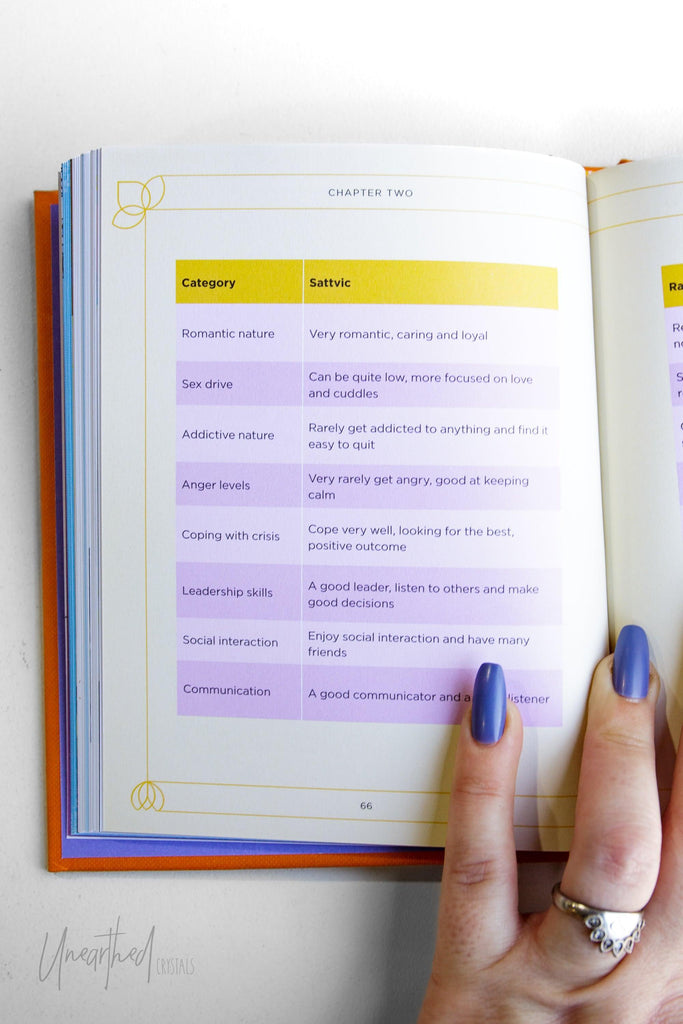 CHAPTER TWO
Category Sattvic
Romantic nature Very romantic, caring and loyal
Sex drive Can be quite low, more focused on love
and cuddles
Addictive nature Rarely get addicted to anything and find it
easy to quit
Anger levels Very rarely get angry, good at keeping
calm
Coping with crisis Cope very well, looking for the best,
positive outcome
Leadership skills A good leader, listen to others and make
good decisions
Social interaction Enjoy social interaction and have many
friends
Communication A good communicator and a listener
66
Ra
Unearthed
CRYSTALS